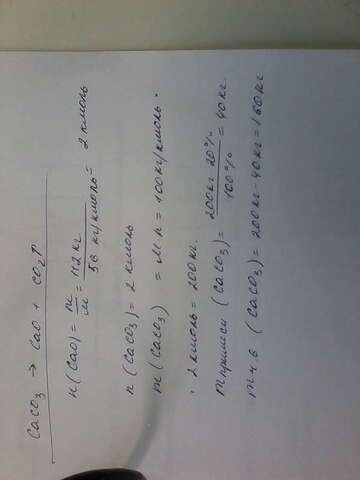 CaCO₃ → CaO + CO₂↑
n(CaO) = m/M = 112 кг / 56 кг/кмоль = 2 кмоль
n(CaCO₃) = 2 кмоль
m(CaCO₃) = M·n = 100 кг/кмоль ·
· 2 кмоль = 200 кг.
mпримеси (CaCO₃) = 200 кг · 20% / 100% = 40 кг.
m ч.в (CaCO₃) = 200 кг - 40 кг = 160 кг